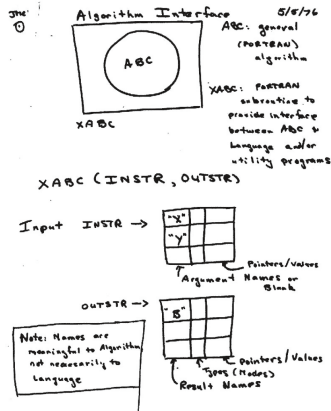 Algorithm Interface
5/5/76
ABC: general
(FORTRAN)
algorithm
ABC
XABC: FORTRAN
subroutine to
provide interface
between ABC &
Language and/or
utility programs
XABC
XABC (INSTR, OUTSTR)
Input INSTR →
"X"
"Y"
Pointers/Values
Argument Names or
Blank
OUTSTR →
"B"
Pointers/Values
Types (Modes)
Result Names
Note: Names are
meaningful to Algorithm
not necessarily to
Language